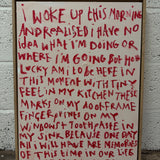 I WOKE UP THIS MORNING
AND REALISED I HAVE NO
IDEA WHAT I'M DOING OR
WHERE I'M GOING BUT HOW
LUCKY AM I TO BE HERE IN
THIS MOMENT WITH TINY
FEET IN MY KITCHEN THESE
MARKS ON MY DOORFRAME
FINGERPRINTS ON MY
WINDOWS TOOTHPASTE IN
MY SINK BECAUSE ONE DAY
ALL I WILL HAVE ARE MEMORIES
OF THIS TIME IN OUR LIFE